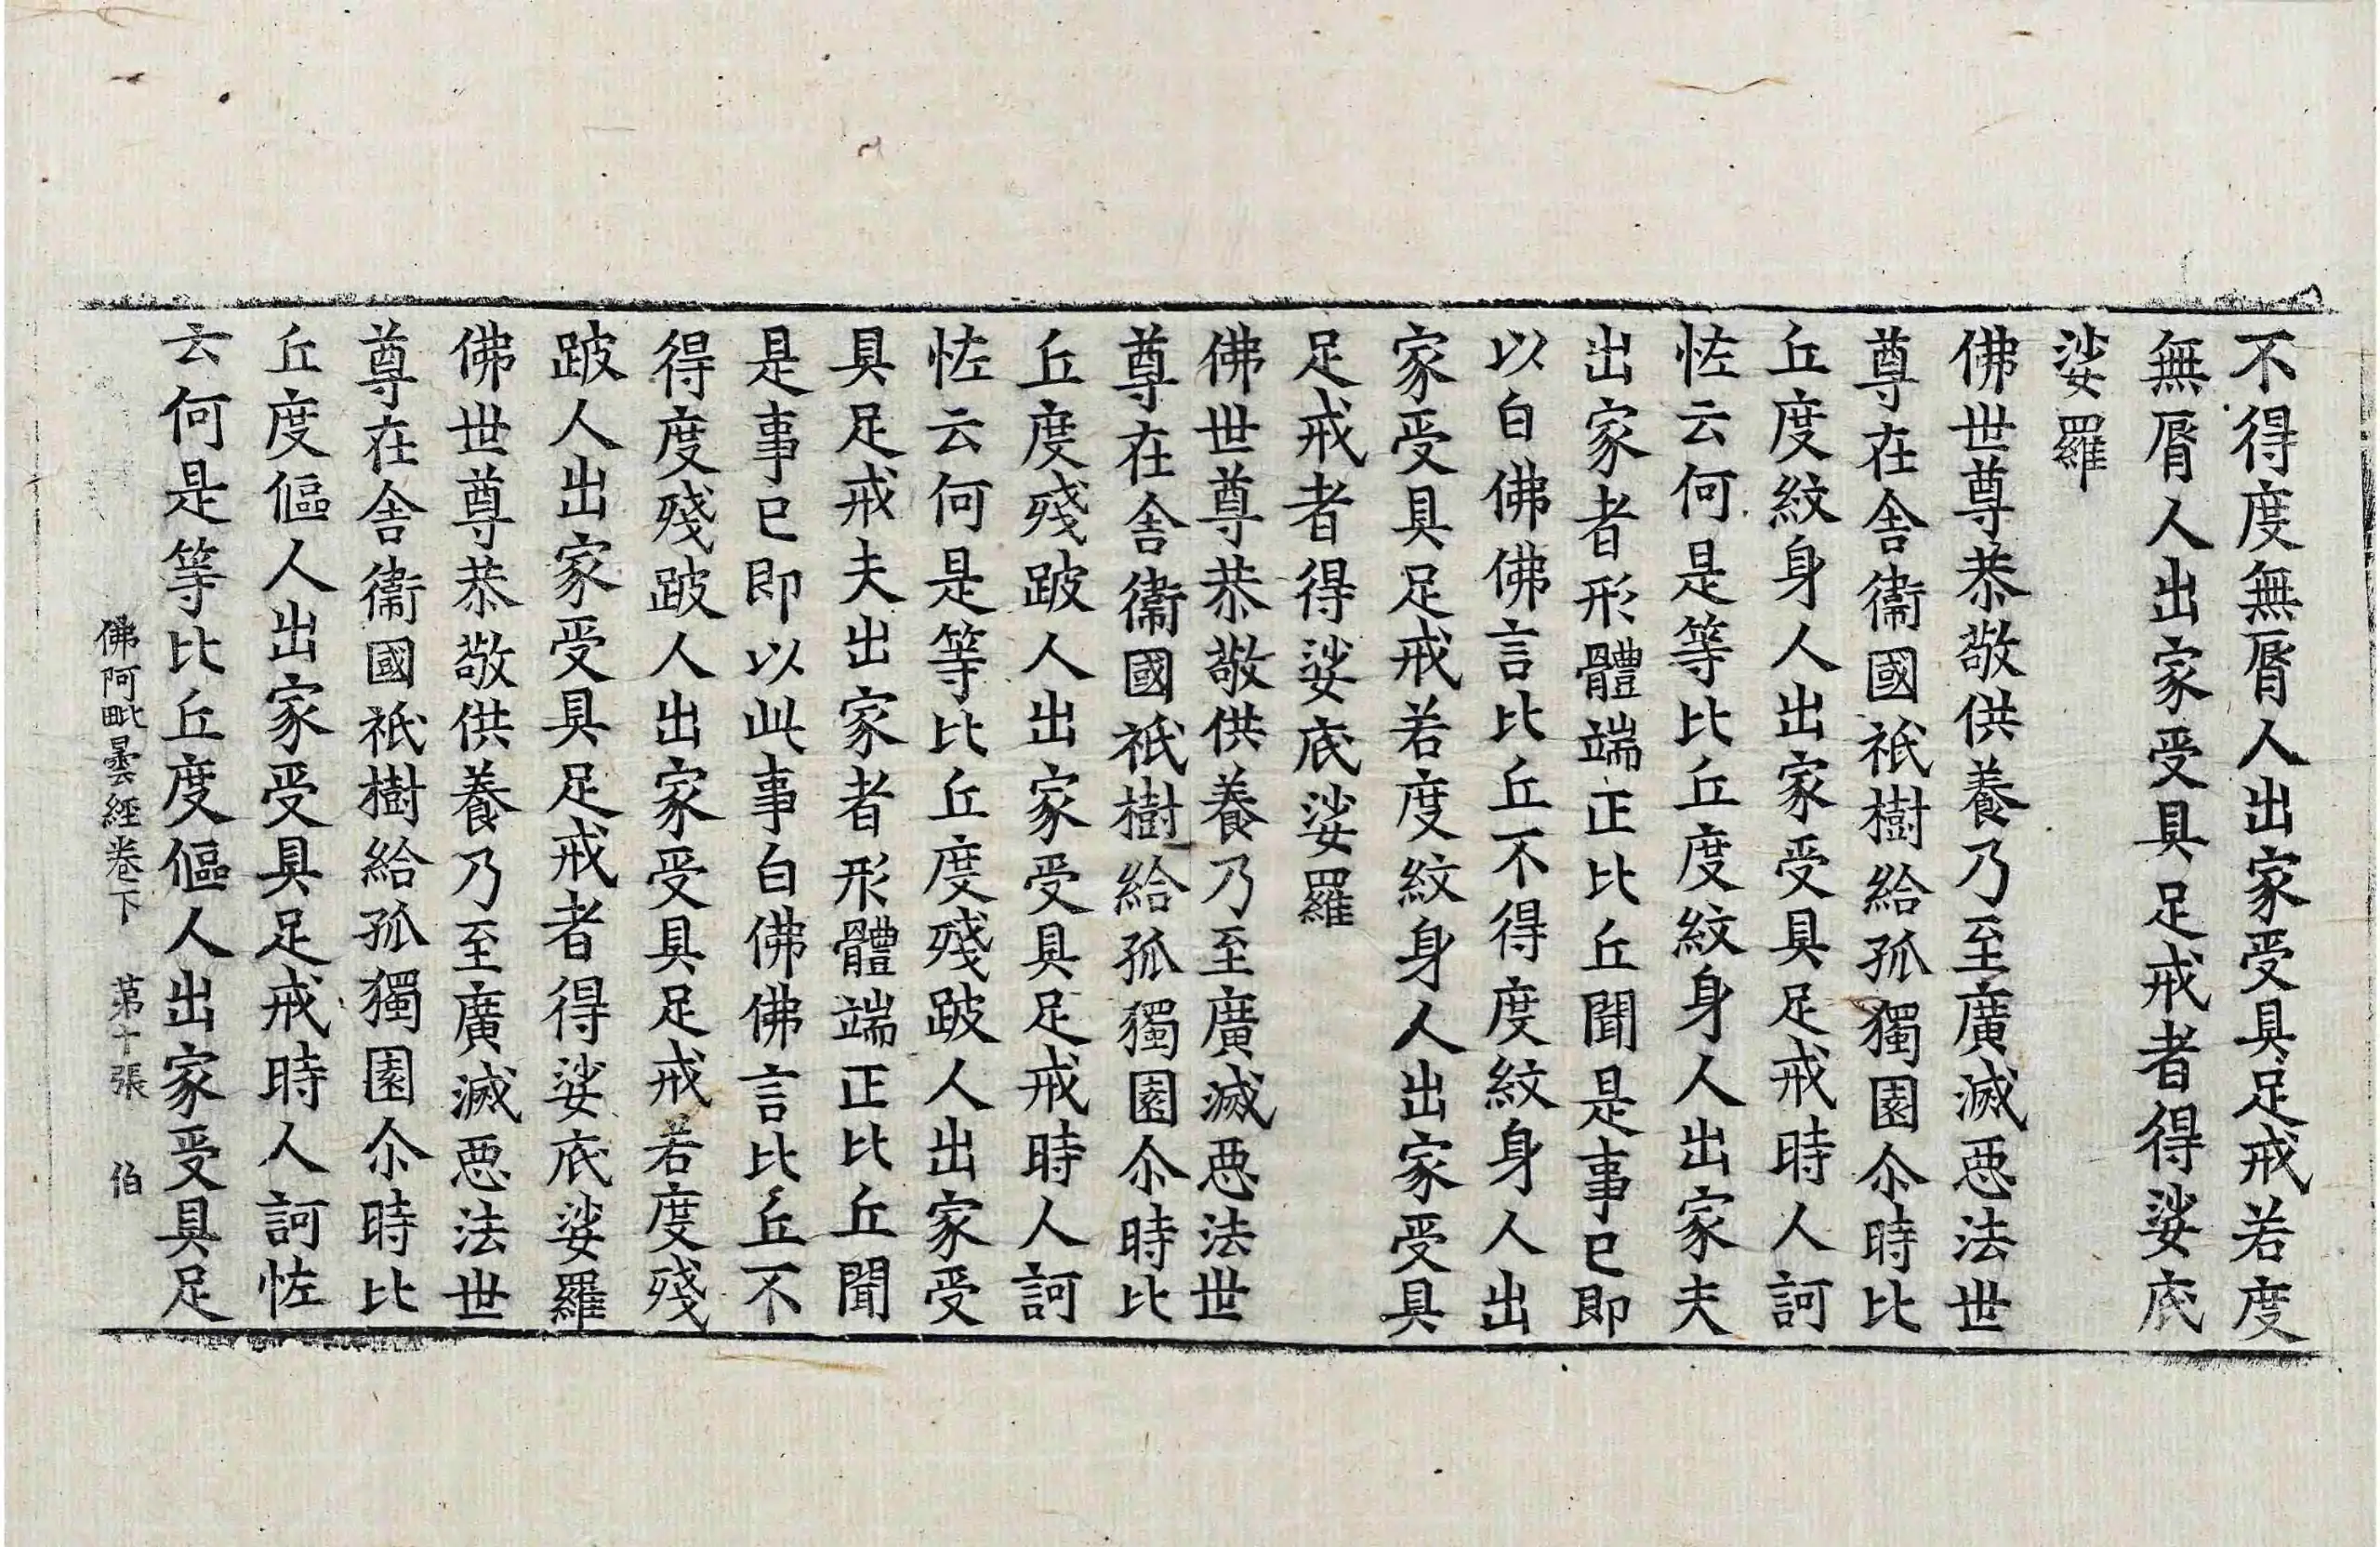 不得度無脣人出家受具足戒若度
無脣人出家受具足戒者得娑底
娑羅
佛世尊恭敬供養乃至廣滅惡法世
尊在舍衞國祇樹給孤獨園尒時比
丘度紋身人出家受具足戒時人訶
恠云何是等比丘度紋身人出家夫
出家者形體端正比丘聞是事已即
以白佛佛言比丘不得度紋身人出
家受具足戒若度紋身人出家受具
足戒者得娑底娑羅
佛世尊恭敬供養乃至廣滅惡法世
尊在舍衞國祇樹給孤獨園尒時比
丘度殘跛人出家受具足戒時人訶
恠云何是等比丘度殘跛人出家受
具足戒夫出家者形體端正比丘聞
是事已即以此事白佛佛言比丘不
得度殘跛人出家受具足戒若度殘
跛人出家受具足戒者得娑底娑羅
佛世尊恭敬供養乃至廣滅惡法世
尊在舍衞國祇樹給孤獨園尒時比
丘度傴人出家受具足戒時人訶恠
云何是等比丘度傴人出家受具足
佛阿毗曇經卷下 第十張 伯